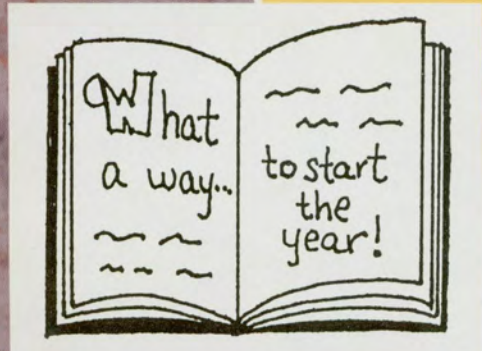 What
a way...
to start
the
year!